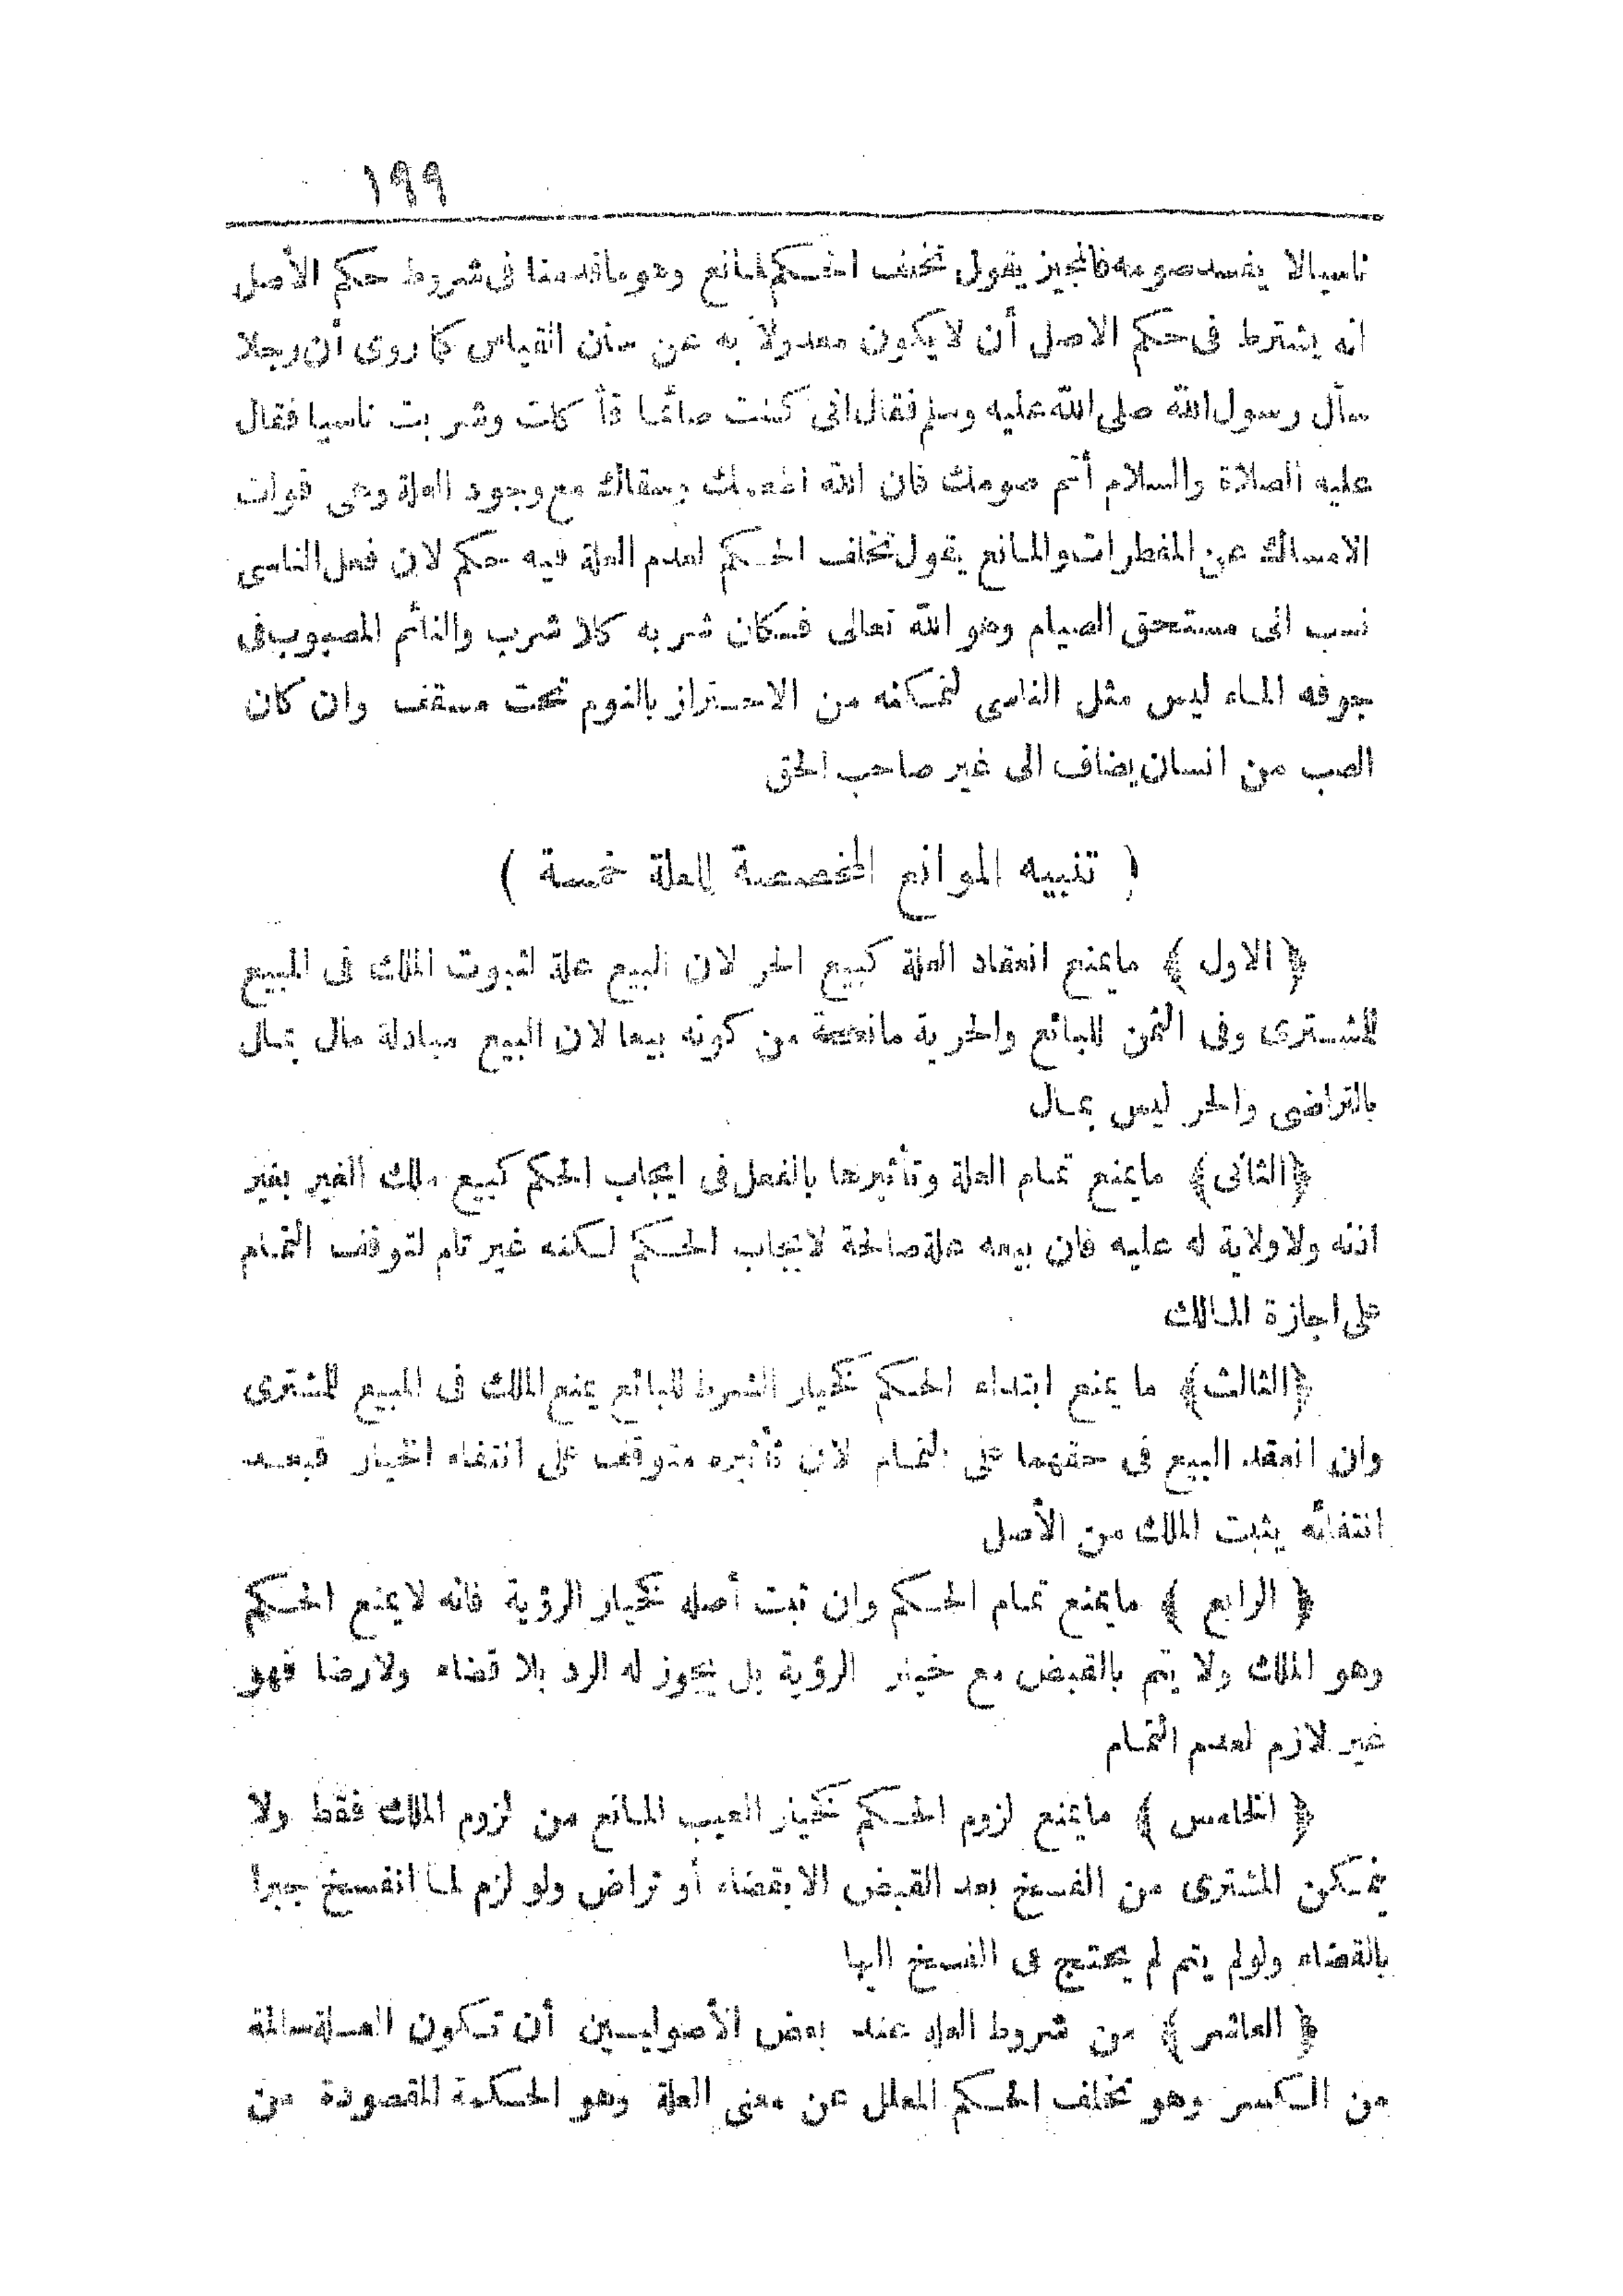 ١٩٩
ناسيا لا يفسد صومه فالمجيز يقول تخلف الحكم لمانع وهو ما قدمنا فى شروط حكم الأصل
انه يشترط فى حكم الاصل أن لا يكون معدولا به عن سنن القياس كما روى أن رجلا
سأل رسول الله صلى الله عليه وسلم فقال انى كنت صائما فأ كلت وشربت ناسيا فقال
عليه الصلاة والسلام أتم صومك فان الله أطعمك وسقاك مع وجود العلة وهى فوات
الامساك عن المفطرات والمانع يقول تخلف الحكم لعدم العلة فيه حكم لان فعل الناسى
نسب الى مستحق الصيام وهو الله تعالى فكان شربه كلا شرب والنائم المصبوب فى
جوفه الماء ليس مثل الناسى لتمكنه من الاحتراز بالنوم تحت مسقف وان كان
الصب من انسان يضاف الى غير صاحب الحق
( تنبيه الموانع المخصصة للعلة خمسة )
﴿ الاول ﴾ ما يمنع انعقاد العلة كبيع الحر لان البيع علة لثبوت الملك فى المبيع
للمشترى وفى الثمن للبائع والحرية مانعة من كونه بيعا لان البيع مبادلة مال بمال
بالتراضى والحر ليس بمال
﴿الثانى﴾ ما يمنع تمام العلة وتأثيرها بالفعل فى ايجاب الحكم كبيع ملك الغير بغير
اذنه ولا ولاية له عليه فان بيعه علة صالحة لايجاب الحكم لكنه غير تام لتوقف التمام
على اجازة المالك
﴿الثالث﴾ ما يمنع ابتداء الحكم كخيار الشرط للبائع يمنع الملك فى المبيع للمشترى
وان انعقد البيع فى حقهما على التمام لان تأثيره متوقف على انتفاء الخيار فبعد
انتفائه يثبت الملك من الأصل
﴿ الرابع ﴾ ما يمنع تمام الحكم وان ثبت أصله كخيار الرؤية فانه لا يمنع الحكم
وهو الملك ولا يتم بالقبض مع خيار الرؤية بل يجوز له الرد بلا قضاء ولا رضا فهو
غير لازم لعدم التمام
﴿ الخامس ﴾ ما يمنع لزوم الحكم كخيار العيب المانع من لزوم الملك فقط ولا
يتمكن المشترى من الفسخ بعد القبض الا بقضاء أو تراض ولو لزم لما انفسخ جبرا
بالقضاء ولو لم يتم لم يحتج فى الفسخ اليها
﴿ العاشر ﴾ من شروط العلة عند بعض الأصوليين أن تكون العلة سالمة
من الكسر وهو تخلف الحكم المعلل عن معنى العلة وهو الحكمة المقصودة من